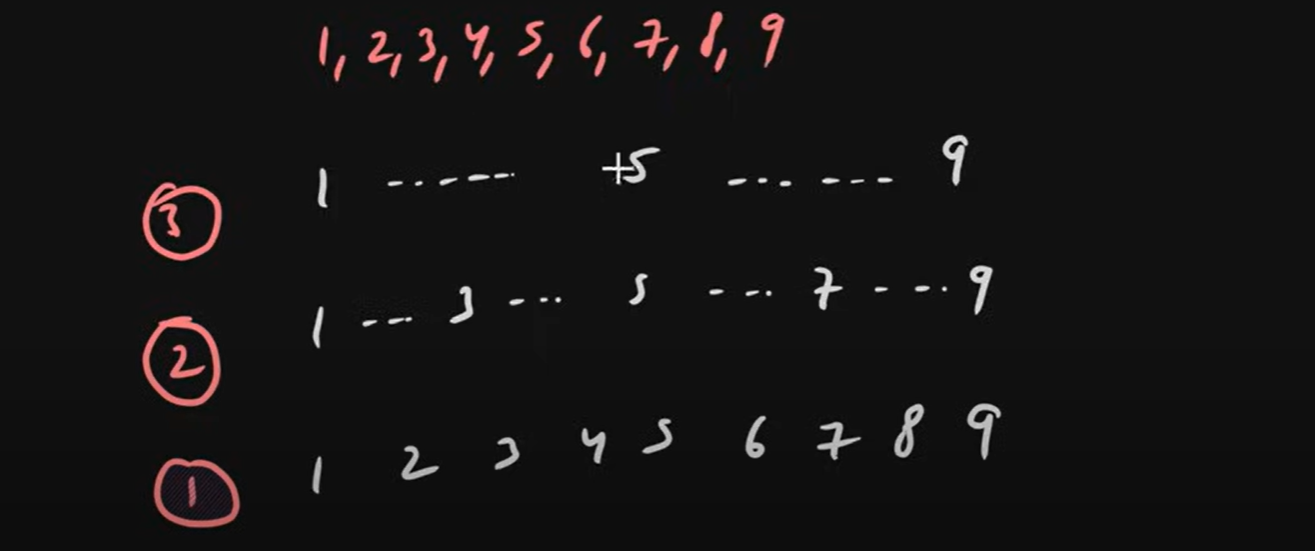 1, 2, 3, 4, 5, 6, 7, 8, 9
3 1 ------ 5 ------ 9
2 1 --- 3 --- 5 --- 7 --- 9
1 1 2 3 4 5 6 7 8 9